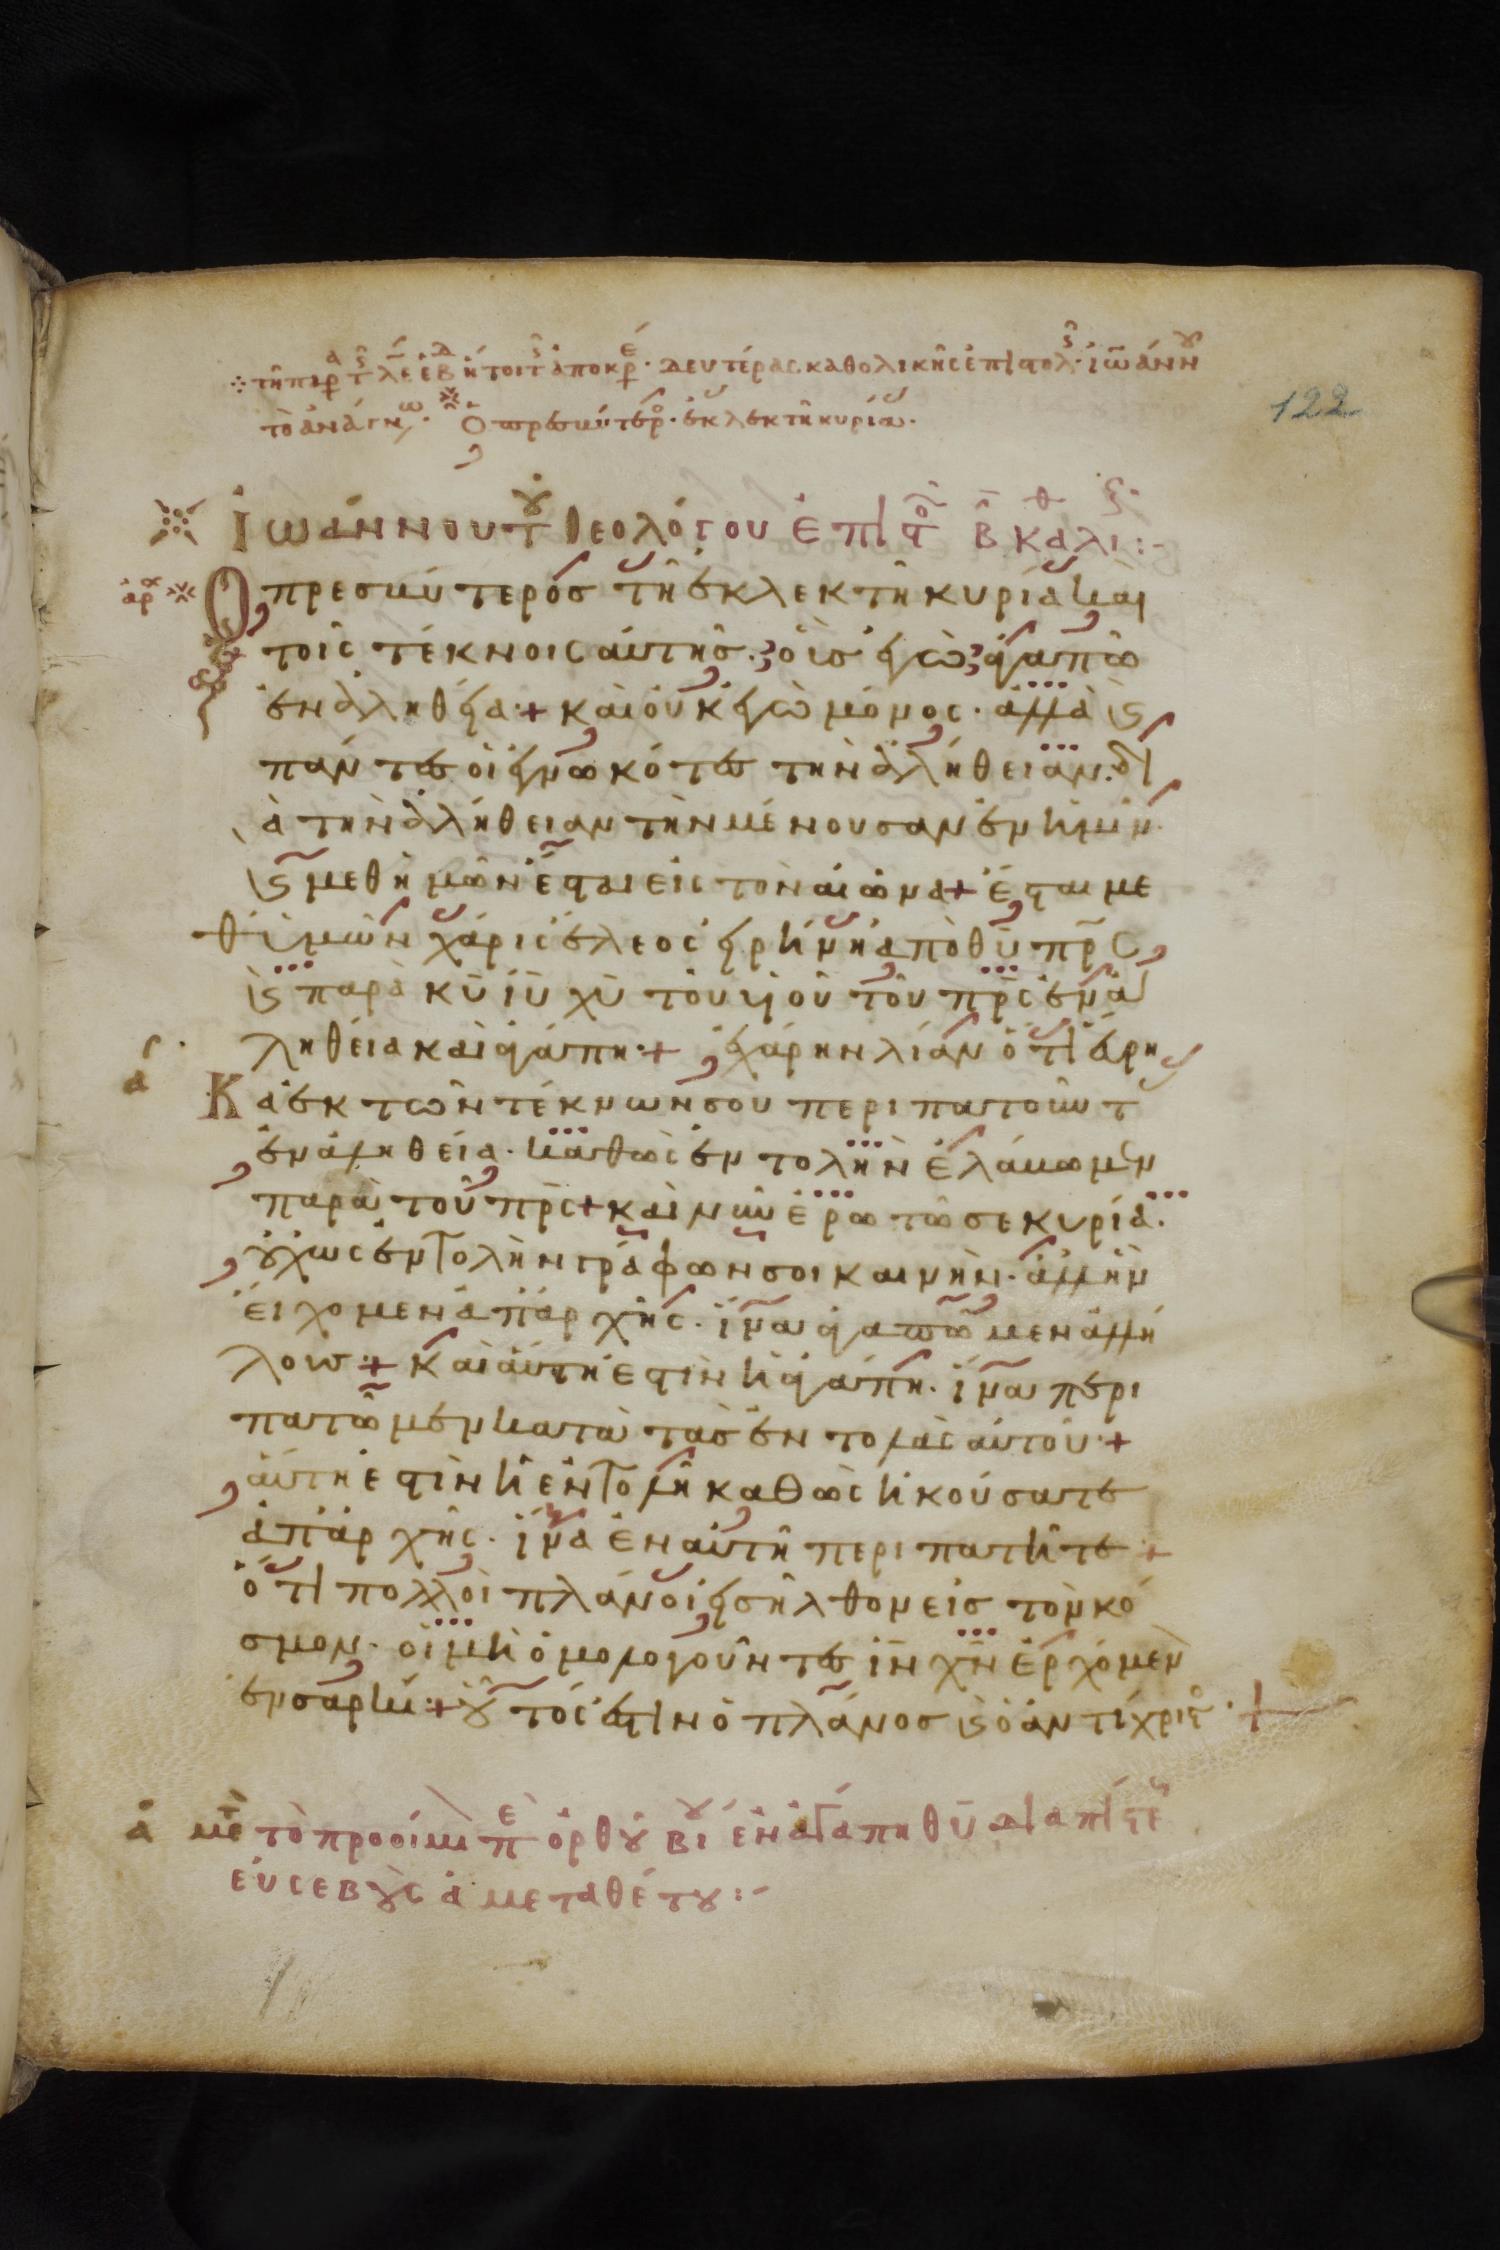 τῇ παρ τ λε ἑβ ἤτοι τ ἀποκρ · δευτέρας καθολικῆς ἐπιστολ · ἰωάννου
τὸ ἀνάγν · Ὁ πρεσβύτερ · ἐκλεκτῆ κυρία ·
122
Ἰωάννου τ θεολόγου ἐπιστο β καθολι :-
αρχ Ὁ πρεσβύτερος τῆ ἐκλεκτῆ κυρία καὶ
τοῖς τέκνοις αὐτῆς · οἷς ἐγὼ ἀγαπῶ
ἐν ἀληθεία + καὶ οὐκ ἐγὼ μόνος · ἀλλὰ ϗ
πάντες οἱ ἐγνωκότες τὴν ἀλήθειαν · δι
ὰ τὴν ἀλήθειαν τὴν μένουσαν ἐν ἡμῖν ·
ϗ μεθ ἡμῶν ἔσται εἰς τὸν αἰῶνα + ἔσται με
θ ἡμῶν χάρις ἔλεος εἰρήνη ἀπὸ θυ πρς
ϗ παρὰ κυ ιυ χυ τοῦ υἱοῦ τοῦ πρς ἐν ἀ
ληθεία καὶ ἀγάπη + ἐχάρην λίαν ὅτι εὕρη
α Κὰ ἐκ τῶν τέκνων σου περιπατοῦντ
ἐν ἀληθεία · καθὼς ἐντολὴν ἐλάβωμεν
παρὰ τοῦ πρς + καὶ νῦν ἐρωτῶ σε κυρία ·
οὐχ ὡς ἐντολὴν γράφων σοι καινὴν · ἀλλ ἣν
εἴχομεν ἀπ ἀρχῆς · ἵνα ἀγαπῶμεν ἀλλή
λους + καὶ αὕτη ἐστὶν ἡ ἀγάπη · ἵνα περι
πατῶμεν κατὰ τὰς ἐντολὰς αὐτοῦ +
αὕτη ἐστὶν ἡ ἐντολὴ καθὼς ἠκούσατε
ἀπ ἀρχῆς · ἵνα ἐν αὐτῆ περιπατῆτε +
ὅτι πολλοὶ πλάνοι εἰσῆλθον εἰς τὸν κό
σμον · οἱ μὴ ὁμολογοῦντες ιν χν ἐρχόμεν
ἐν σαρκί + οὗτός ἐστιν ὁ πλάνος ϗ ὁ ἀντίχριστο · +
α μετ τὸ προοίμι π ὀρθοῦ βίου ἐν ἀγάπη θυ διὰ πίστε
εὐσεβοῦς ἀμεταθέτου :-